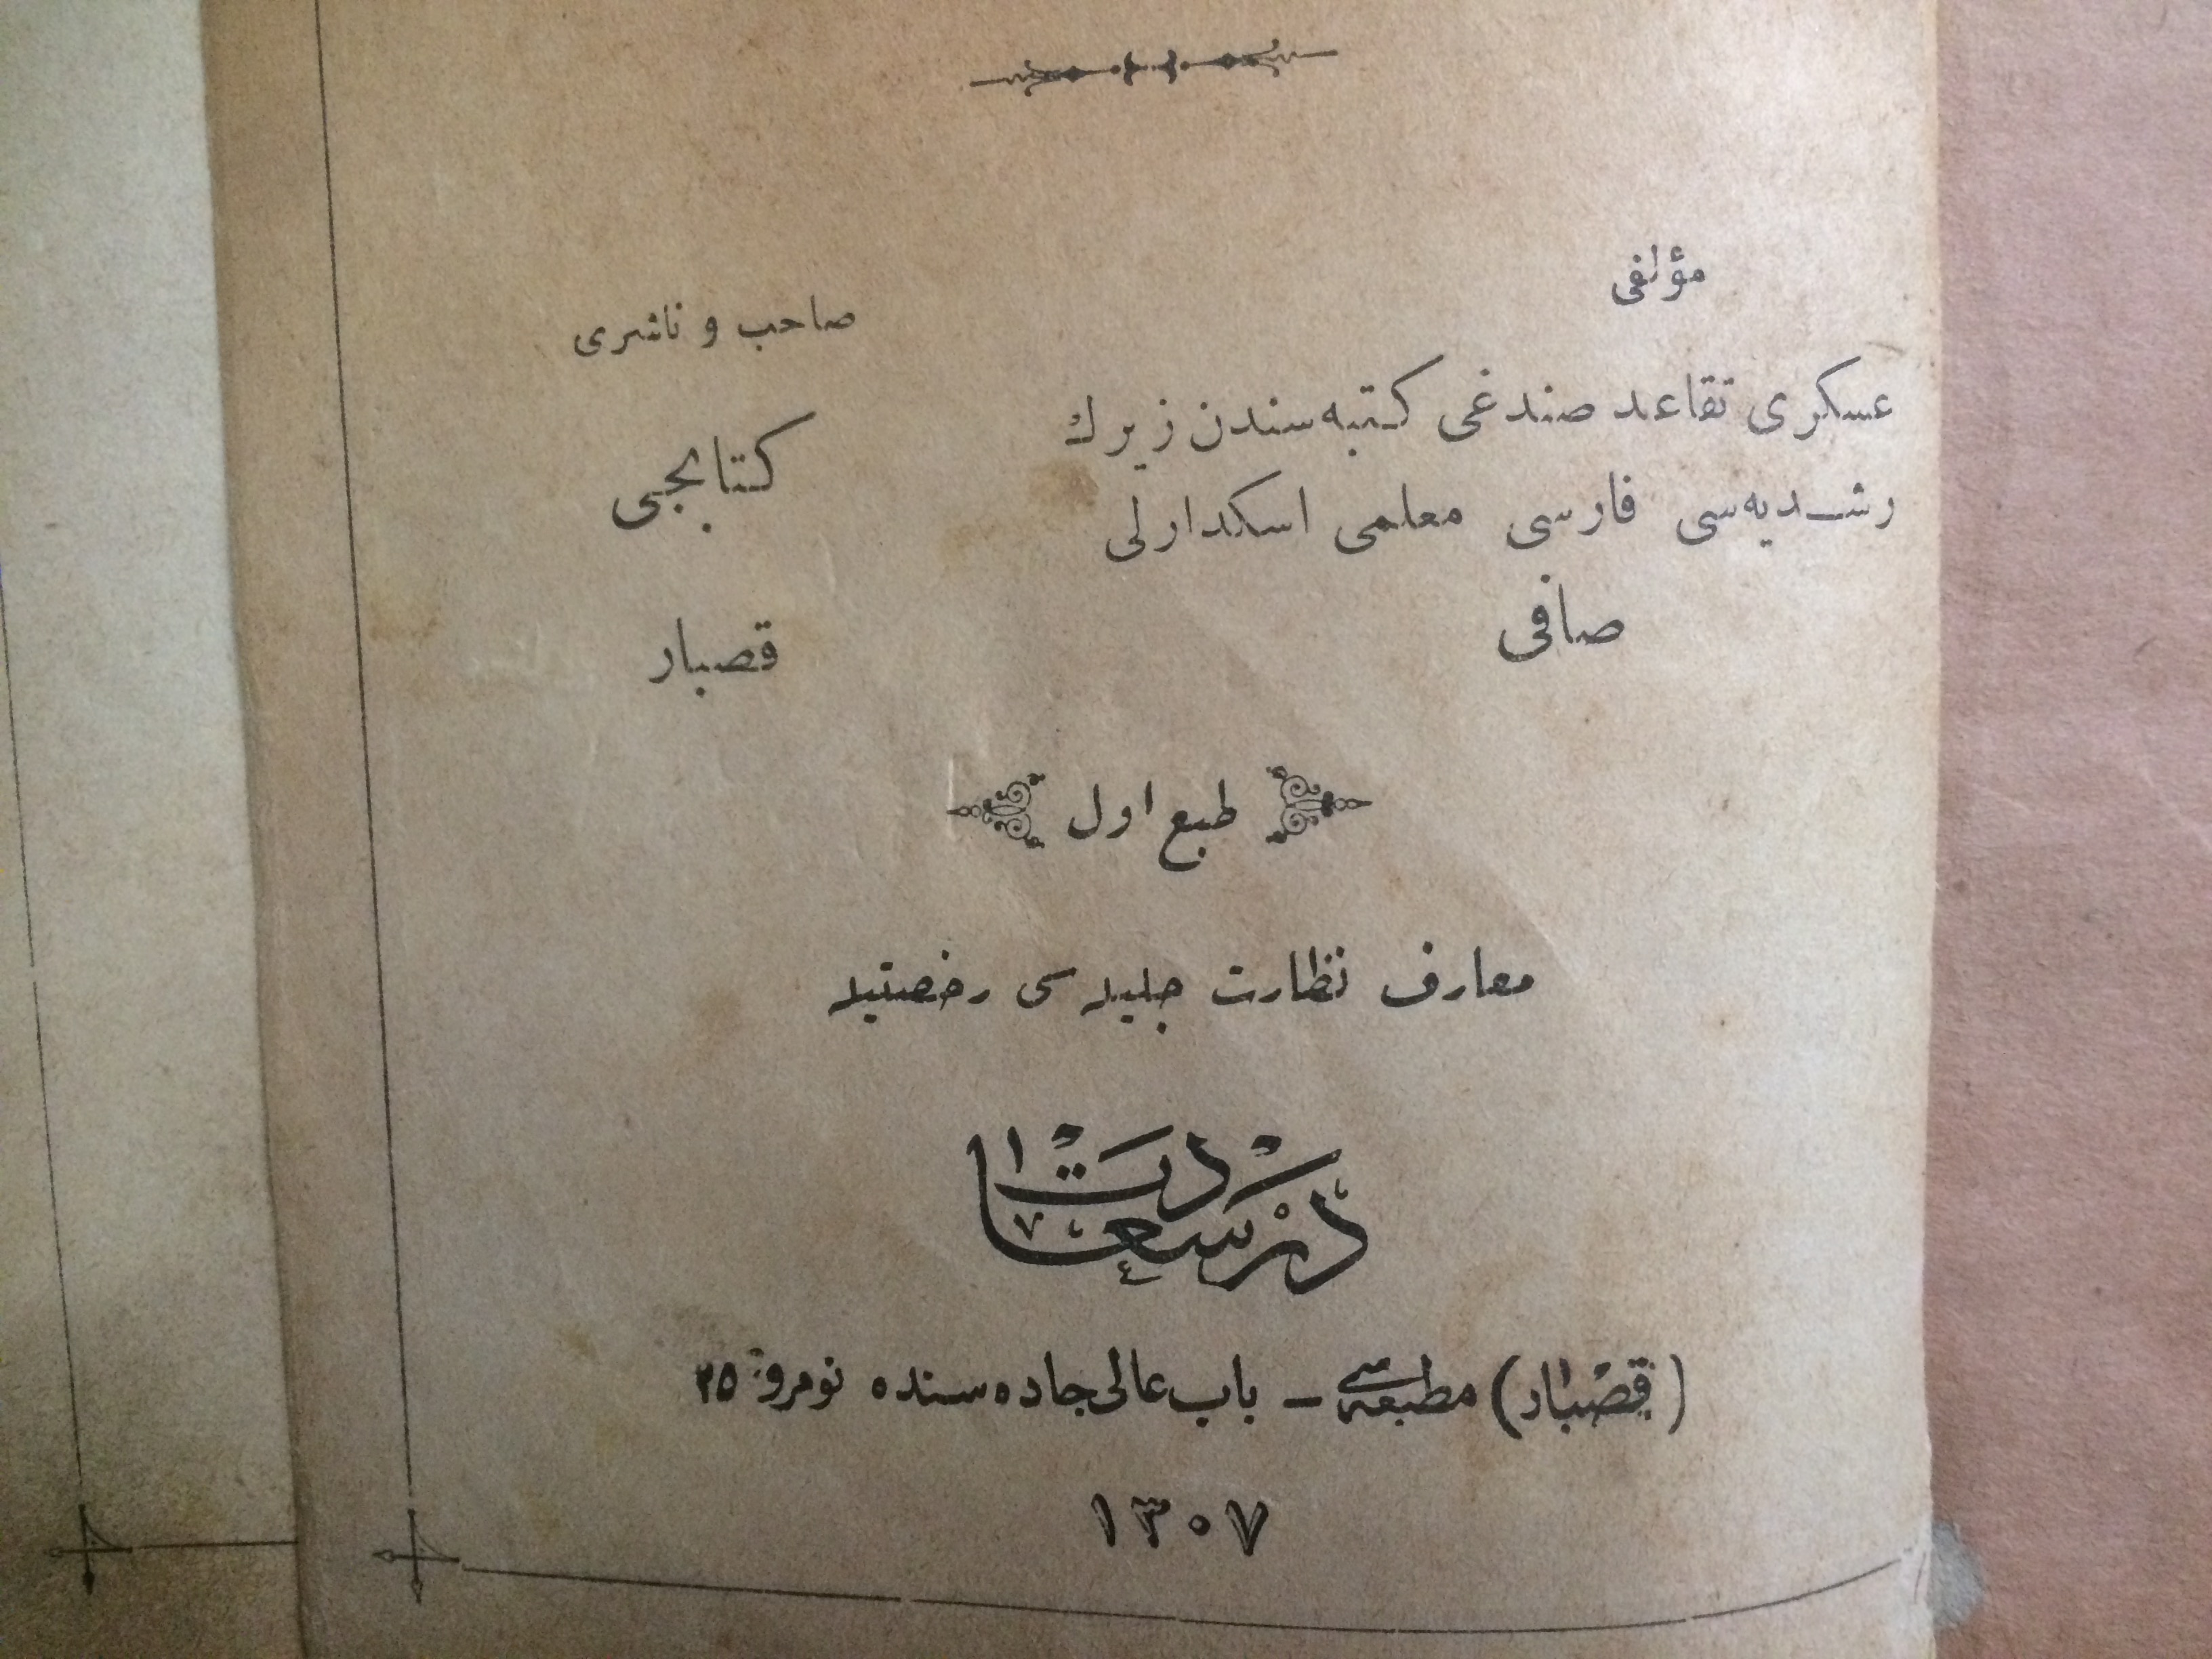 مؤلفی
عسكری تقاعد صندغی كتبه‌سندن زیرك
رشدیه‌سی فارسی معلمی اسكدارلی
صافی
صاحب و ناشری
كتابجی
قصبار
طبع اول
معارف نظارت جلیله سی رخصتیله
درسعادت
(قصبار) مطبعه‌سی – باب عالی جاده‌سنده نومرو: ٢٥
١٣٠٧